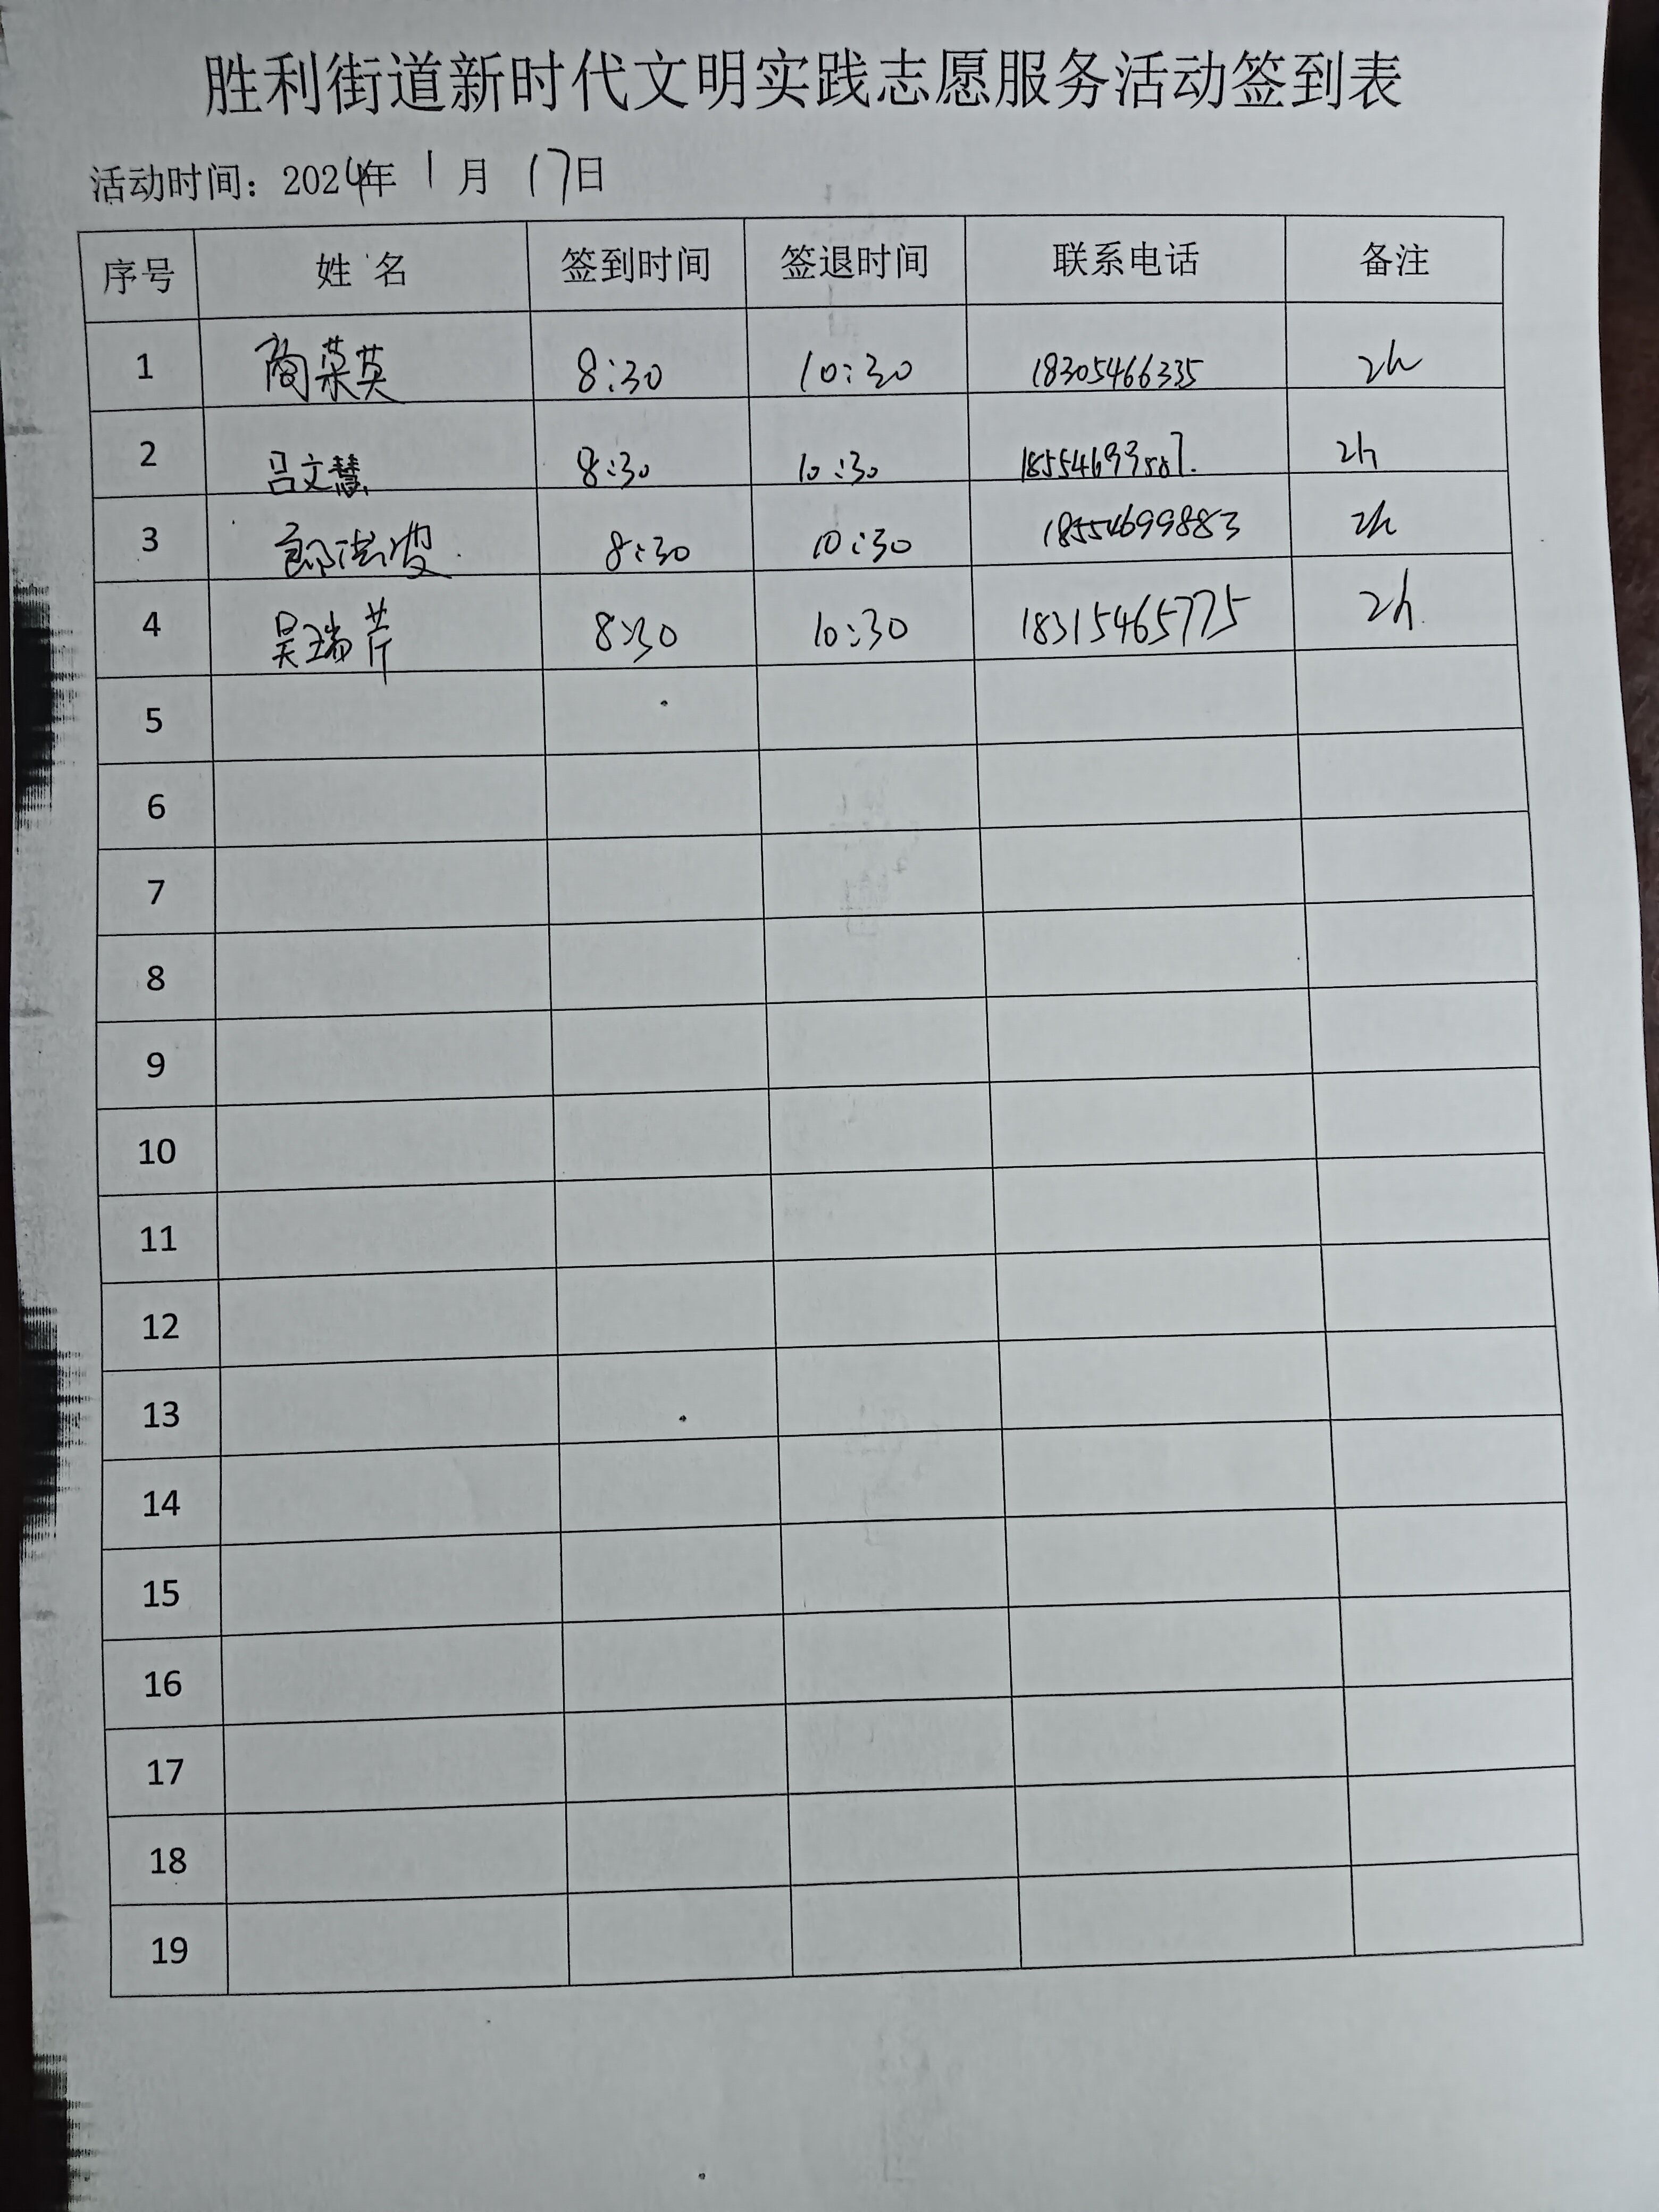 胜利街道新时代文明实践志愿服务活动签到表
活动时间：2024年 1 月 17日
序号 姓 名 签到时间 签退时间 联系电话 备注
1 商菜英 8:30 10:30 18305466335 2h
2 吕文慧 8:30 10:30 2h
3 8:30 10:30 18554699883 2h
4 吴瑞芹 8:30 10:30 18315465775 2h
5
6
7
8
9
10
11
12
13
14
15
16
17
18
19